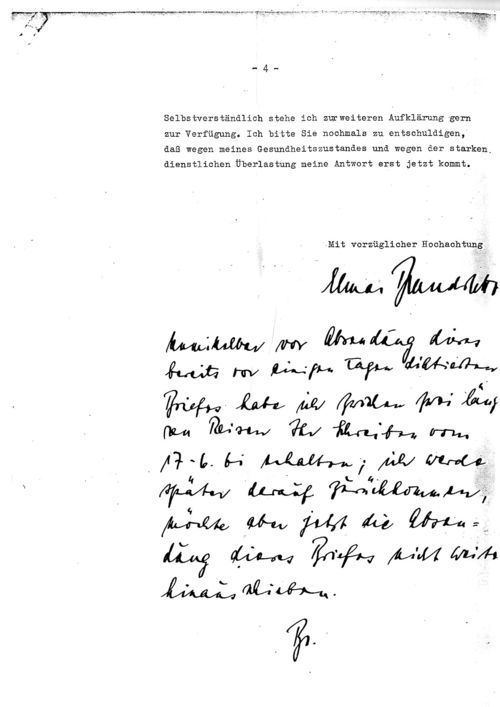 - 4 -
Selbstverständlich stehe ich zur weiteren Aufklärung gern
zur Verfügung. Ich bitte Sie nochmals zu entschuldigen,
daß wegen meines Gesundheitszustandes und wegen der starken
dienstlichen Überlastung meine Antwort erst jetzt kommt.
Mit vorzüglicher Hochachtung
Unmittelbar vor Absendung dieses
bereits vor einigen Tagen diktierten
Briefes habe ich zwischen zwei läng
ren Reisen Ihr Schreiben vom
17.6. erhalten; ich werde
später darauf zurückkommen,
möchte aber jetzt die Absen=
dung dieses Briefes nicht weite
hinausschieben.
Br.